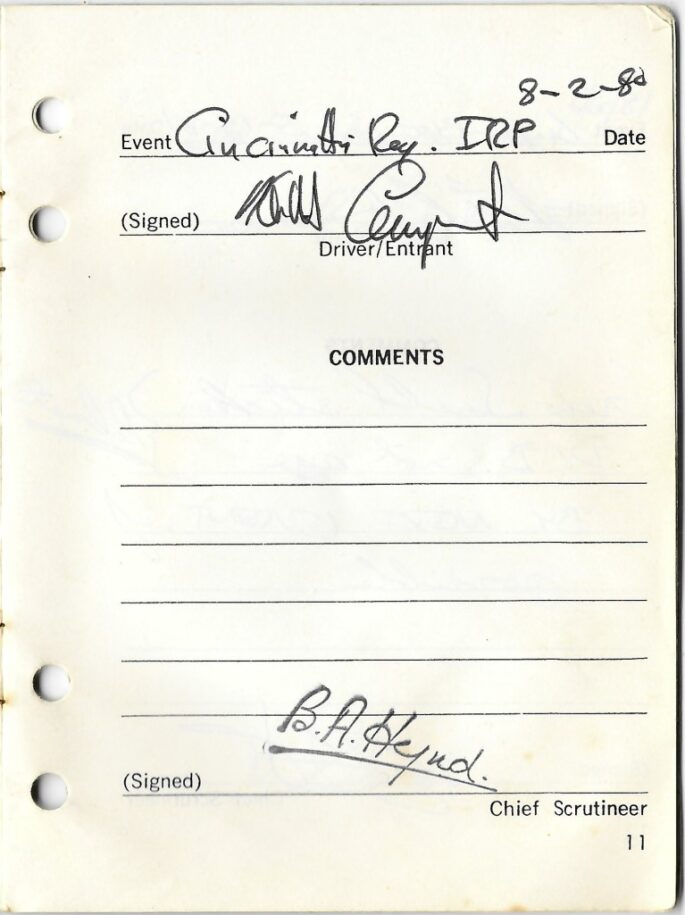 8-2-80
Event Cincinatti Reg. IRP Date
(Signed)
Driver/Entrant
COMMENTS
B.A. Hynd.
(Signed)
Chief Scrutineer
11